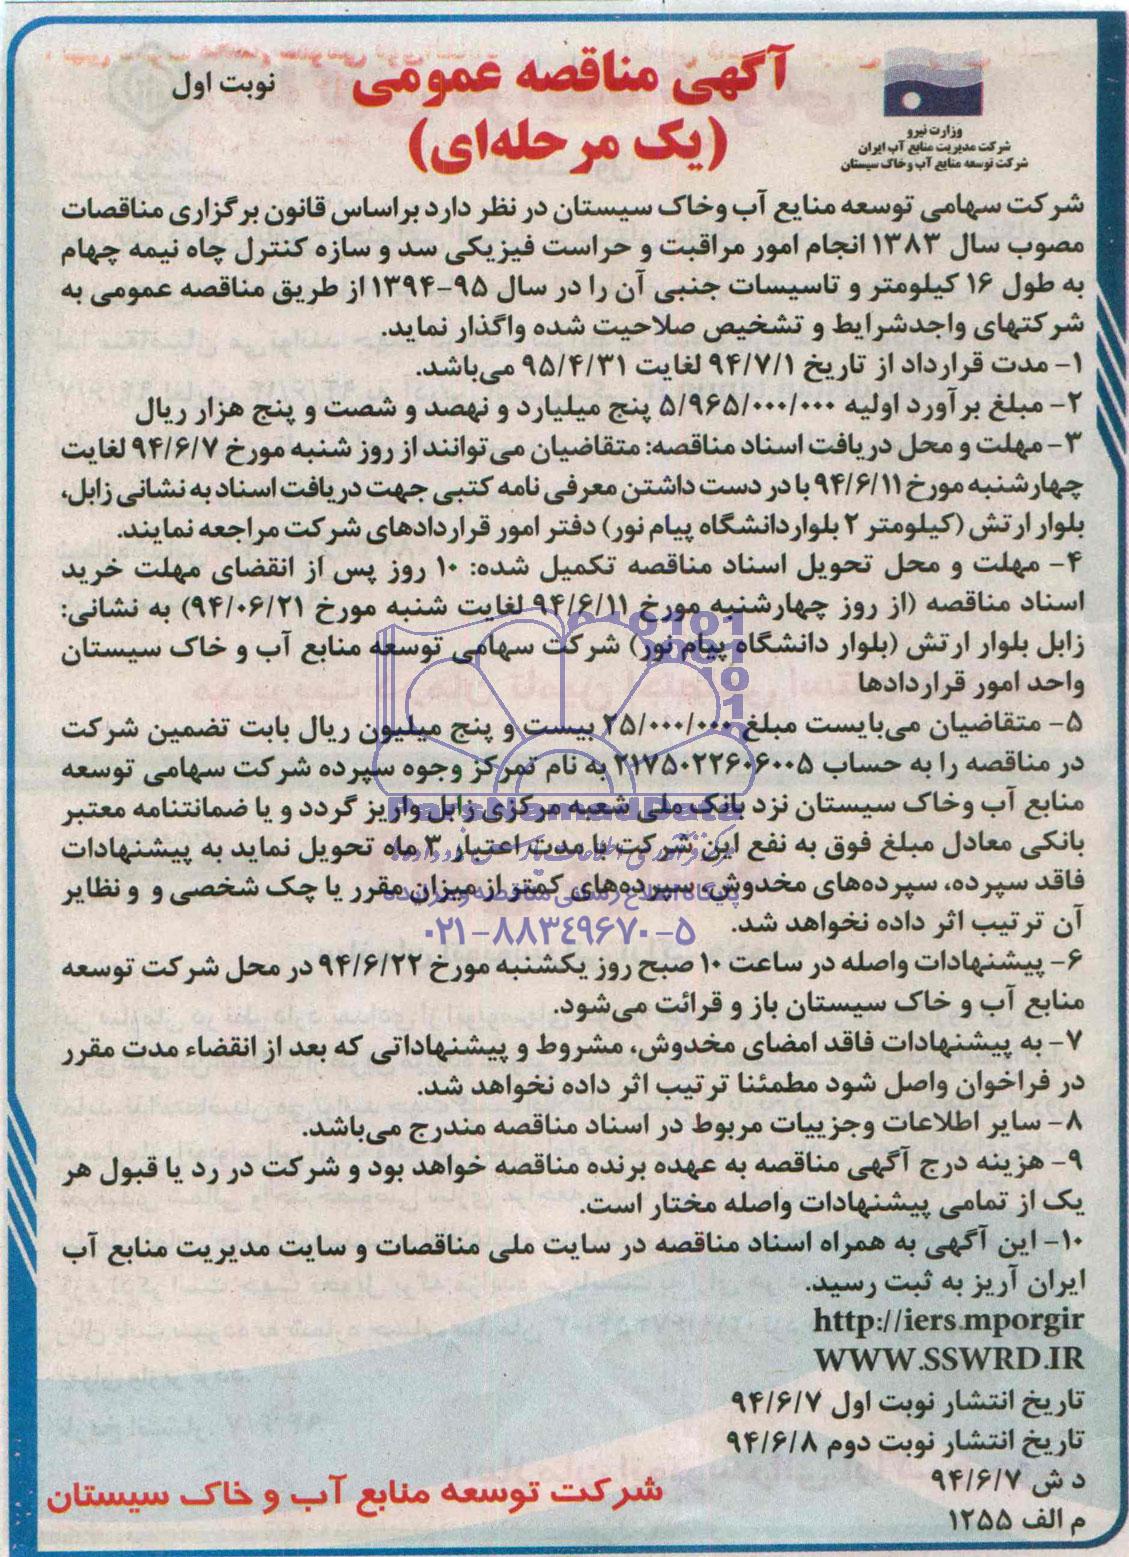 آگهی مناقصه عمومی
(یک مرحله‌ای)
نوبت اول
وزارت نیرو
شرکت مدیریت منابع آب ایران
شرکت توسعه منابع آب و خاک سیستان
شرکت سهامی توسعه منایع آب وخاک سیستان در نظر دارد براساس قانون برگزاری مناقصات
مصوب سال ۱۳۸۳ انجام امور مراقبت و حراست فیزیکی سد و سازه کنترل چاه نیمه چهام
به طول ۱۶ کیلومتر و تاسیسات جنبی آن را در سال ۹۵-۱۳۹۴ از طریق مناقصه عمومی به
شرکتهای واجدشرایط و تشخیص صلاحیت شده واگذار نماید.
۱- مدت قرارداد از تاریخ ۹۴/۷/۱ لغایت ۹۵/۴/۳۱ می‌باشد.
۲- مبلغ برآورد اولیه ۵/۹۶۵/۰۰۰/۰۰۰ پنج میلیارد و نهصد و شصت و پنج هزار ریال
۳- مهلت و محل دریافت اسناد مناقصه: متقاضیان می‌توانند از روز شنبه مورخ ۹۴/۶/۷ لغایت
چهارشنبه مورخ ۹۴/۶/۱۱ با در دست داشتن معرفی نامه کتبی جهت دریافت اسناد به نشانی زابل،
بلوار ارتش (کیلومتر ۲ بلوار دانشگاه پیام نور) دفتر امور قراردادهای شرکت مراجعه نمایند.
۴- مهلت و محل تحویل اسناد مناقصه تکمیل شده: ۱۰ روز پس از انقضای مهلت خرید
اسناد مناقصه (از روز چهارشنبه مورخ ۹۴/۶/۱۱ لغایت شنبه مورخ ۹۴/۰۶/۲۱) به نشانی:
زابل بلوار ارتش (بلوار دانشگاه پیام نور) شرکت سهامی توسعه منابع آب و خاک سیستان
واحد امور قراردادها
۵- متقاضیان می‌بایست مبلغ ۲۵/۰۰۰/۰۰۰ بیست و پنج میلیون ریال بابت تضمین شرکت
در مناقصه را به حساب ۲۱۷۵۰۲۲۶۰۶۰۰۵ به نام تمرکز وجوه سپرده شرکت سهامی توسعه
منابع آب وخاک سیستان نزد بانک ملی شعبه مرکزی زابل واریز گردد و یا ضمانتنامه معتبر
بانکی معادل مبلغ فوق به نفع این شرکت با مدت اعتبار ۳ ماه تحویل نماید به پیشنهادات
فاقد سپرده، سپرده‌های مخدوش، سپرده‌های کمتر از میزان مقرر یا چک شخصی و و نظایر
آن ترتیب اثر داده نخواهد شد.
۶- پیشنهادات واصله در ساعت ۱۰ صبح روز یکشنبه مورخ ۹۴/۶/۲۲ در محل شرکت توسعه
منابع آب و خاک سیستان باز و قرائت می‌شود.
۷- به پیشنهادات فاقد امضای مخدوش، مشروط و پیشنهاداتی که بعد از انقضاء مدت مقرر
در فراخوان واصل شود مطمئنا ترتیب اثر داده نخواهد شد.
۸- سایر اطلاعات وجزییات مربوط در اسناد مناقصه مندرج می‌باشد.
۹- هزینه درج آگهی مناقصه به عهده برنده مناقصه خواهد بود و شرکت در رد یا قبول هر
یک از تمامی پیشنهادات واصله مختار است.
۱۰- این آگهی به همراه اسناد مناقصه در سایت ملی مناقصات و سایت مدیریت منابع آب
ایران آریز به ثبت رسید.
http://iers.mporgir
WWW.SSWRD.IR
تاریخ انتشار نوبت اول ۹۴/۶/۷
تاریخ انتشار نوبت دوم ۹۴/۶/۸
د ش ۹۴/۶/۷
م الف ۱۲۵۵
شرکت توسعه منابع آب و خاک سیستان
ParsNamadData
پایگاه اطلاع رسانی مناقصه و مزایده
۰۲۱-۸۸۳۴۹۶۷۰-۵